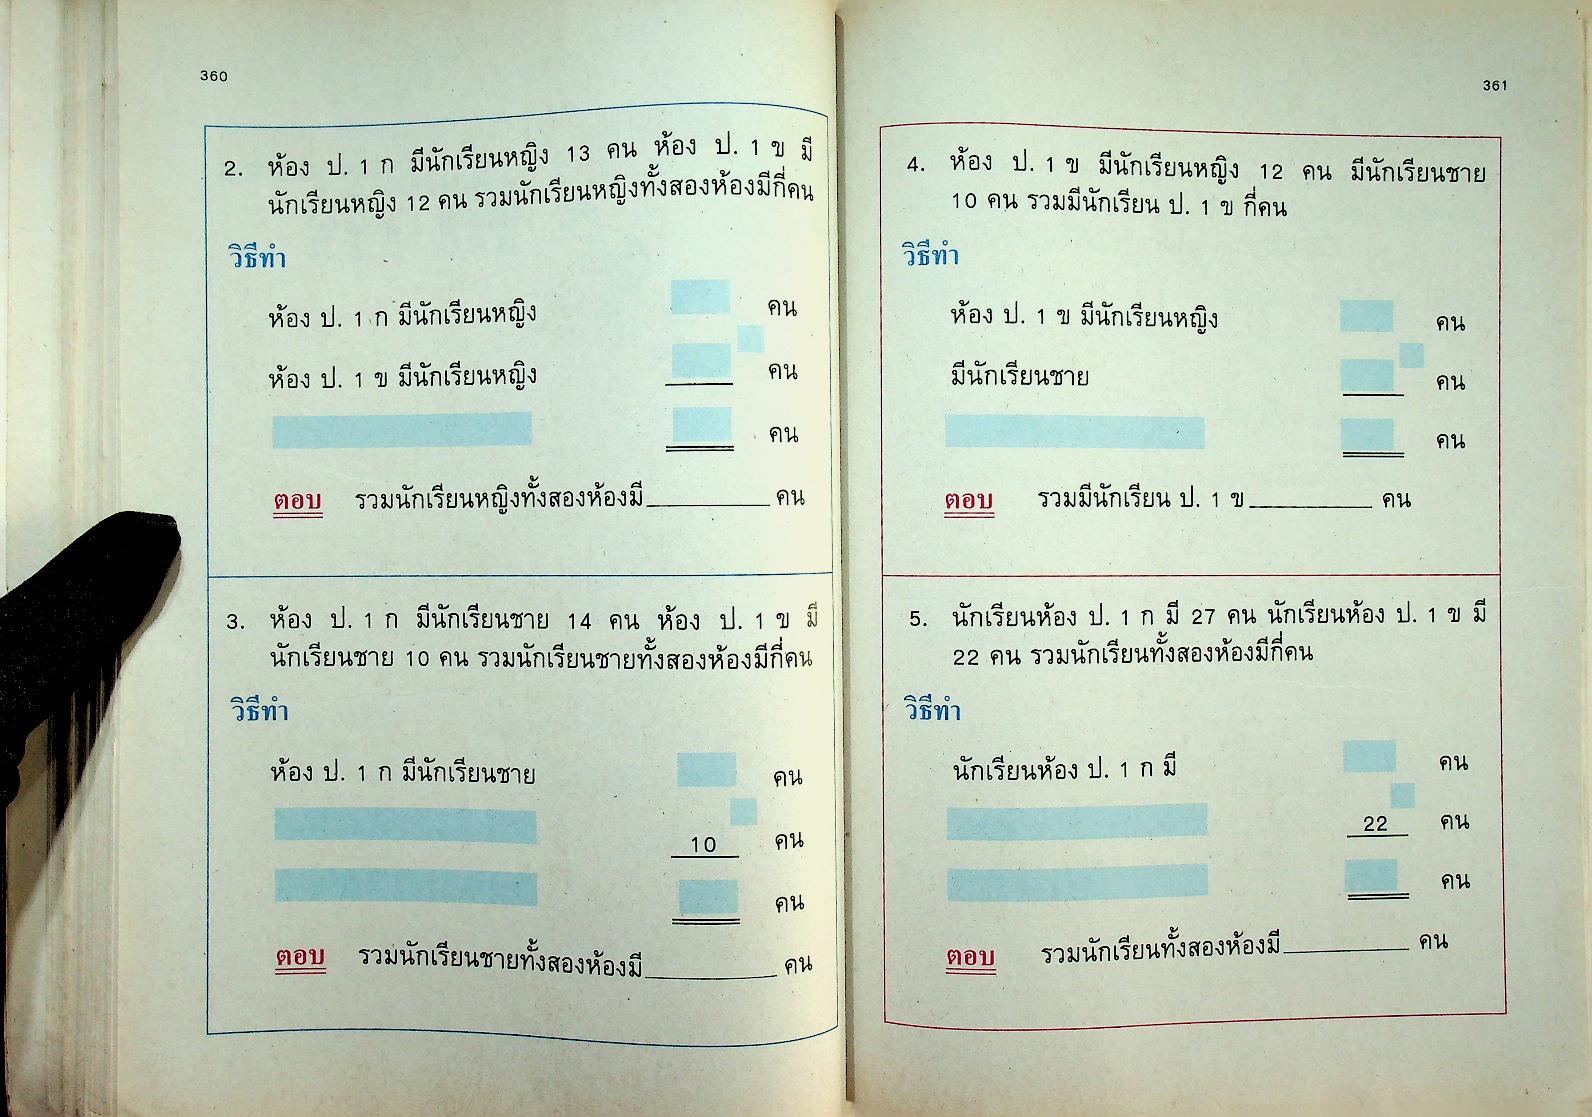 360
2. ห้อง ป. 1 ก มีนักเรียนหญิง 13 คน ห้อง ป. 1 ข มี
นักเรียนหญิง 12 คน รวมนักเรียนหญิงทั้งสองห้องมีกี่คน
วิธีทำ
ห้อง ป. 1 ก มีนักเรียนหญิง คน
ห้อง ป. 1 ข มีนักเรียนหญิง คน
คน
ตอบ รวมนักเรียนหญิงทั้งสองห้องมี คน
3. ห้อง ป. 1 ก มีนักเรียนชาย 14 คน ห้อง ป. 1 ข มี
นักเรียนชาย 10 คน รวมนักเรียนชายทั้งสองห้องมีกี่คน
วิธีทำ
ห้อง ป. 1 ก มีนักเรียนชาย คน
10 คน
คน
ตอบ รวมนักเรียนชายทั้งสองห้องมี คน
361
4. ห้อง ป. 1 ข มีนักเรียนหญิง 12 คน มีนักเรียนชาย
10 คน รวมมีนักเรียน ป. 1 ข กี่คน
วิธีทำ
ห้อง ป. 1 ข มีนักเรียนหญิง คน
มีนักเรียนชาย คน
คน
ตอบ รวมมีนักเรียน ป. 1 ข คน
5. นักเรียนห้อง ป. 1 ก มี 27 คน นักเรียนห้อง ป. 1 ข มี
22 คน รวมนักเรียนทั้งสองห้องมีกี่คน
วิธีทำ
นักเรียนห้อง ป. 1 ก มี คน
22 คน
คน
ตอบ รวมนักเรียนทั้งสองห้องมี คน